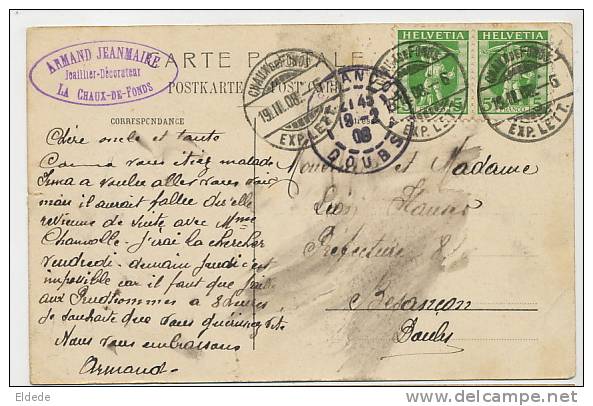 ARMAND JEANMAIRE
Joaillier-Décorateur
LA CHAUX-DE-FONDS
CARTE POSTALE
POSTKARTE
CORRESPONDANCE
HELVETIA HELVETIA
5 5
FRANCO
CHAUX DE FONDS
19.II.08. G
EXP. LETT.
BESANÇON
21 45
19 2
08
DOUBS
Chère oncle et tante
Comme vous étiez malade
Irma a voulue aller vous voir
mais il aurait fallue qu'elle
revienne de suite avec Mme
j'irai la chercher
vendredi. demain jeudi c'est
impossible car il faut que j'aille
aux Prud'hommes a 8 heures
Je souhaite que vous guérissiez vite
Nous vous embrassons
Armand
Monsieur et Madame
Léon
Préfecture 8
Besançon
Doubs
Eldede
delcampe.net